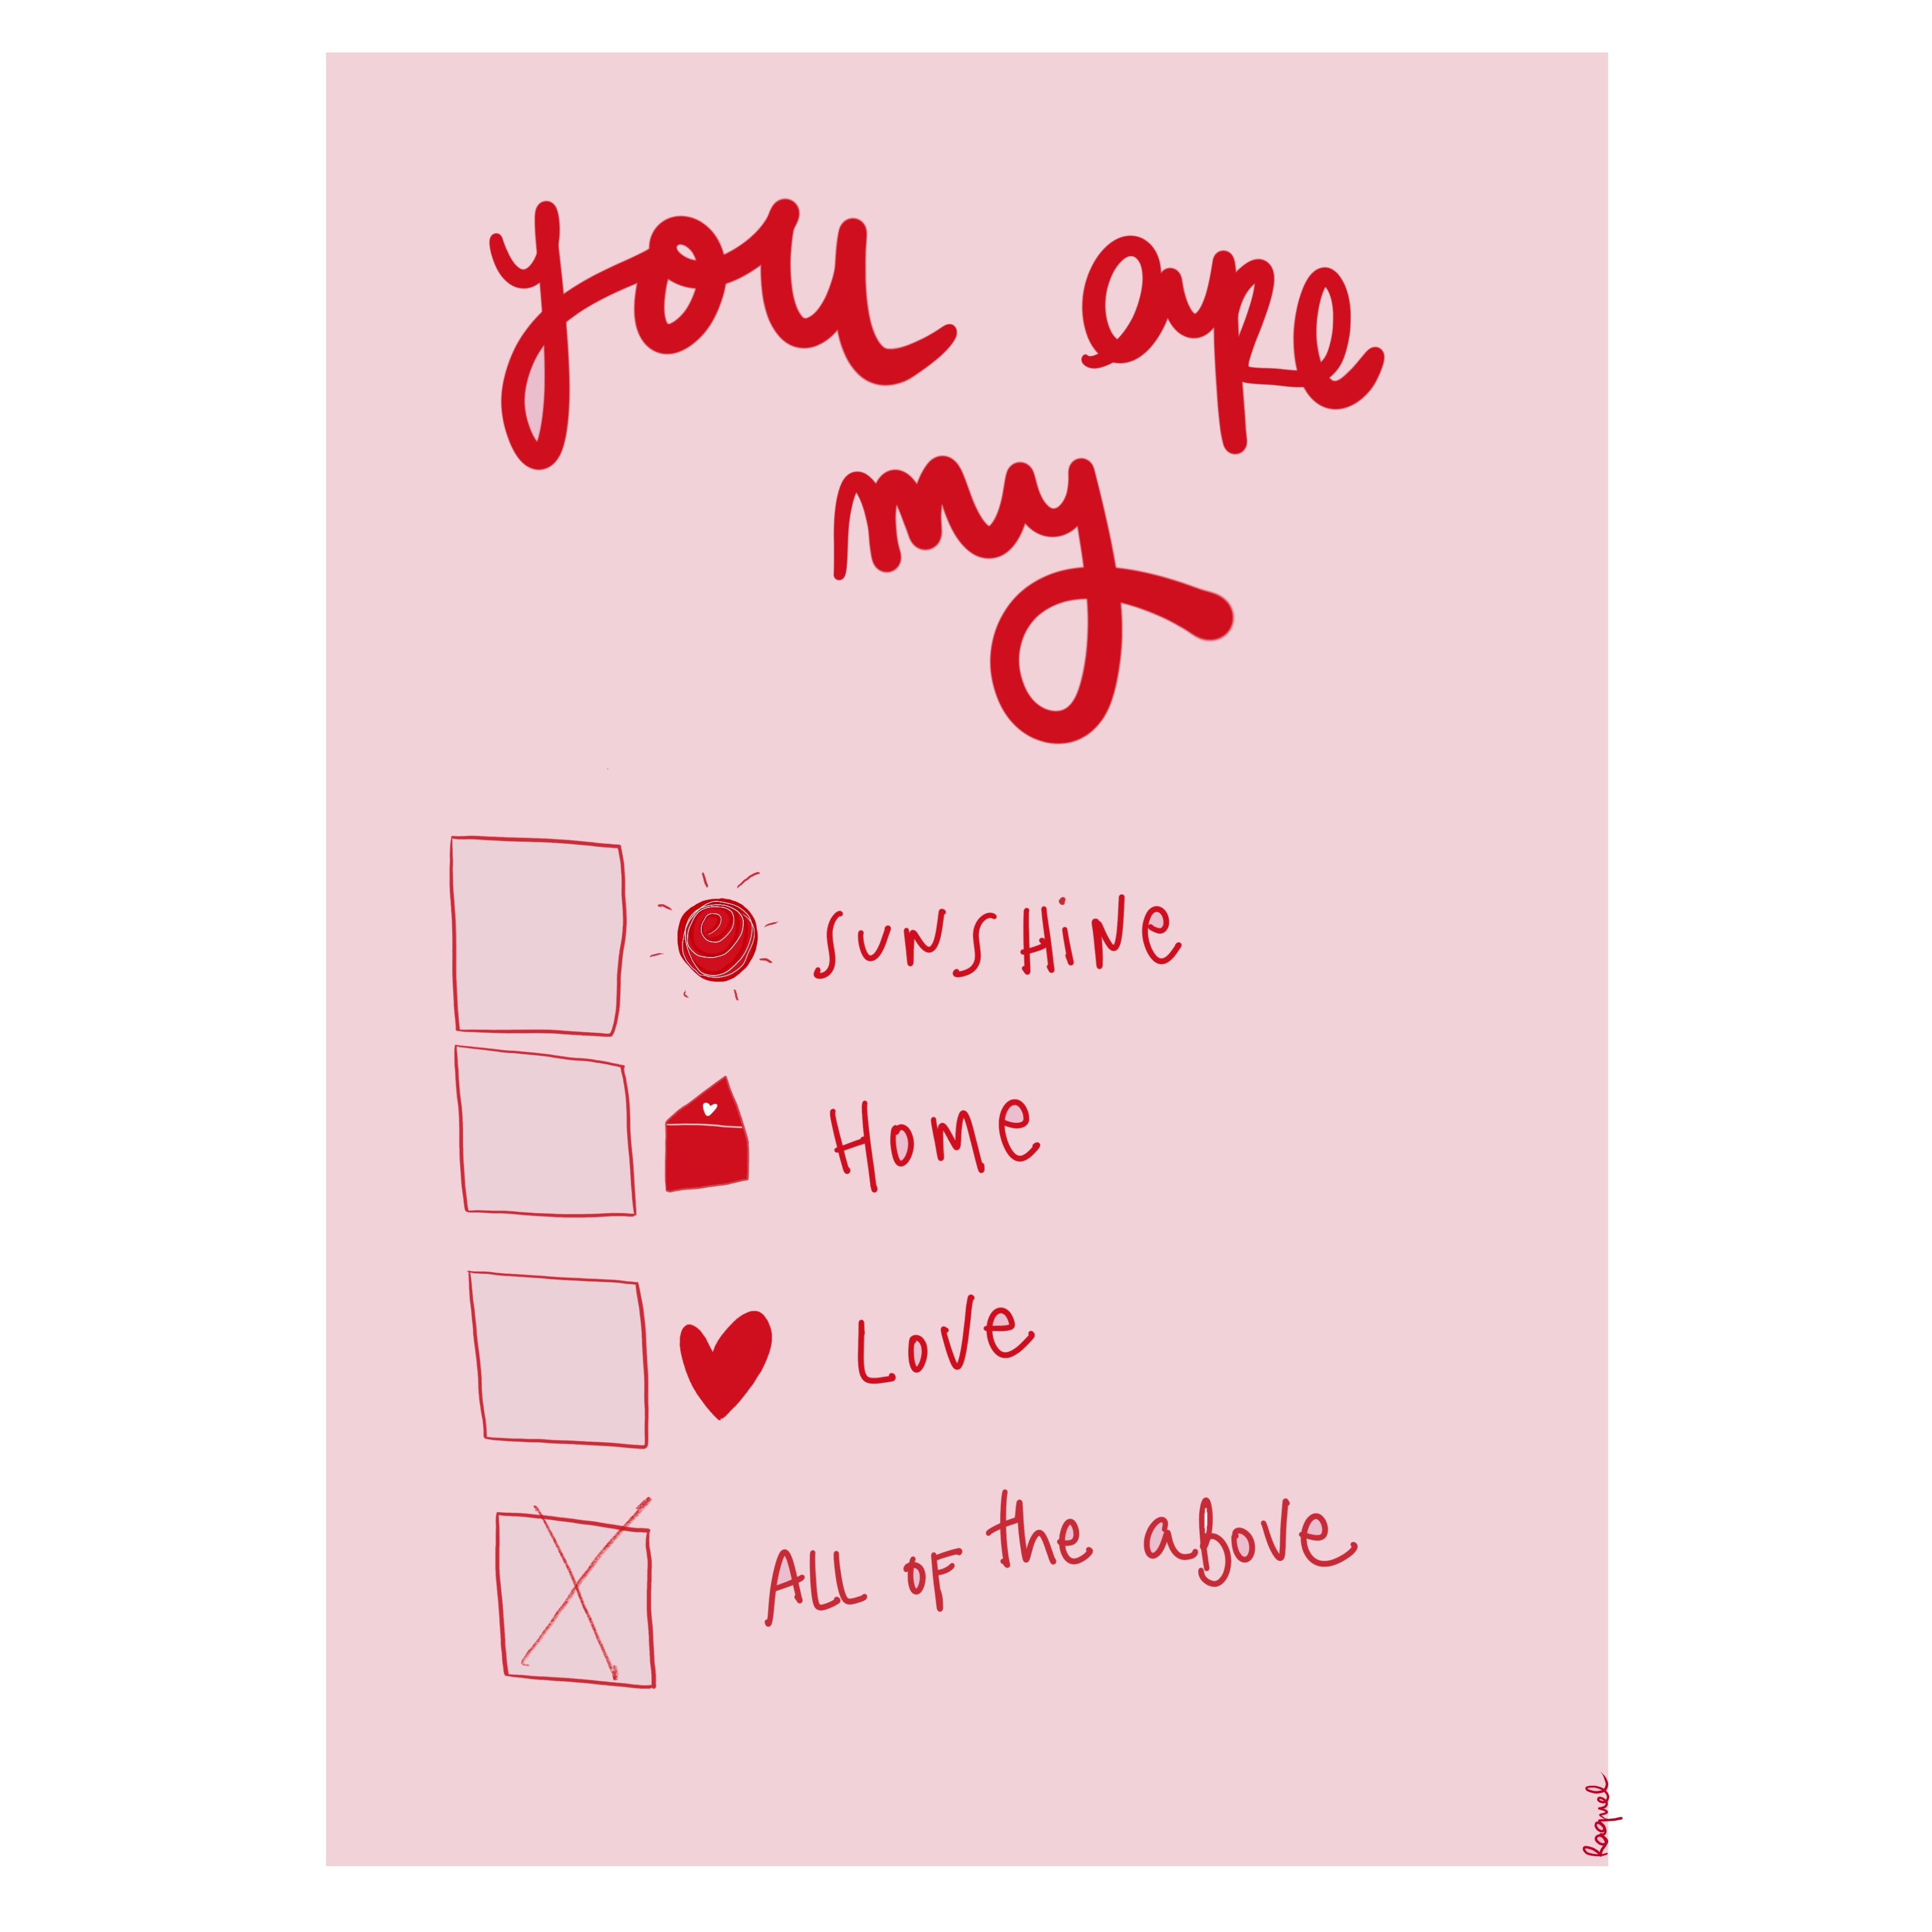 you are
my
SUNSHiNe
Home
Love
ALL OF the above
Raquel